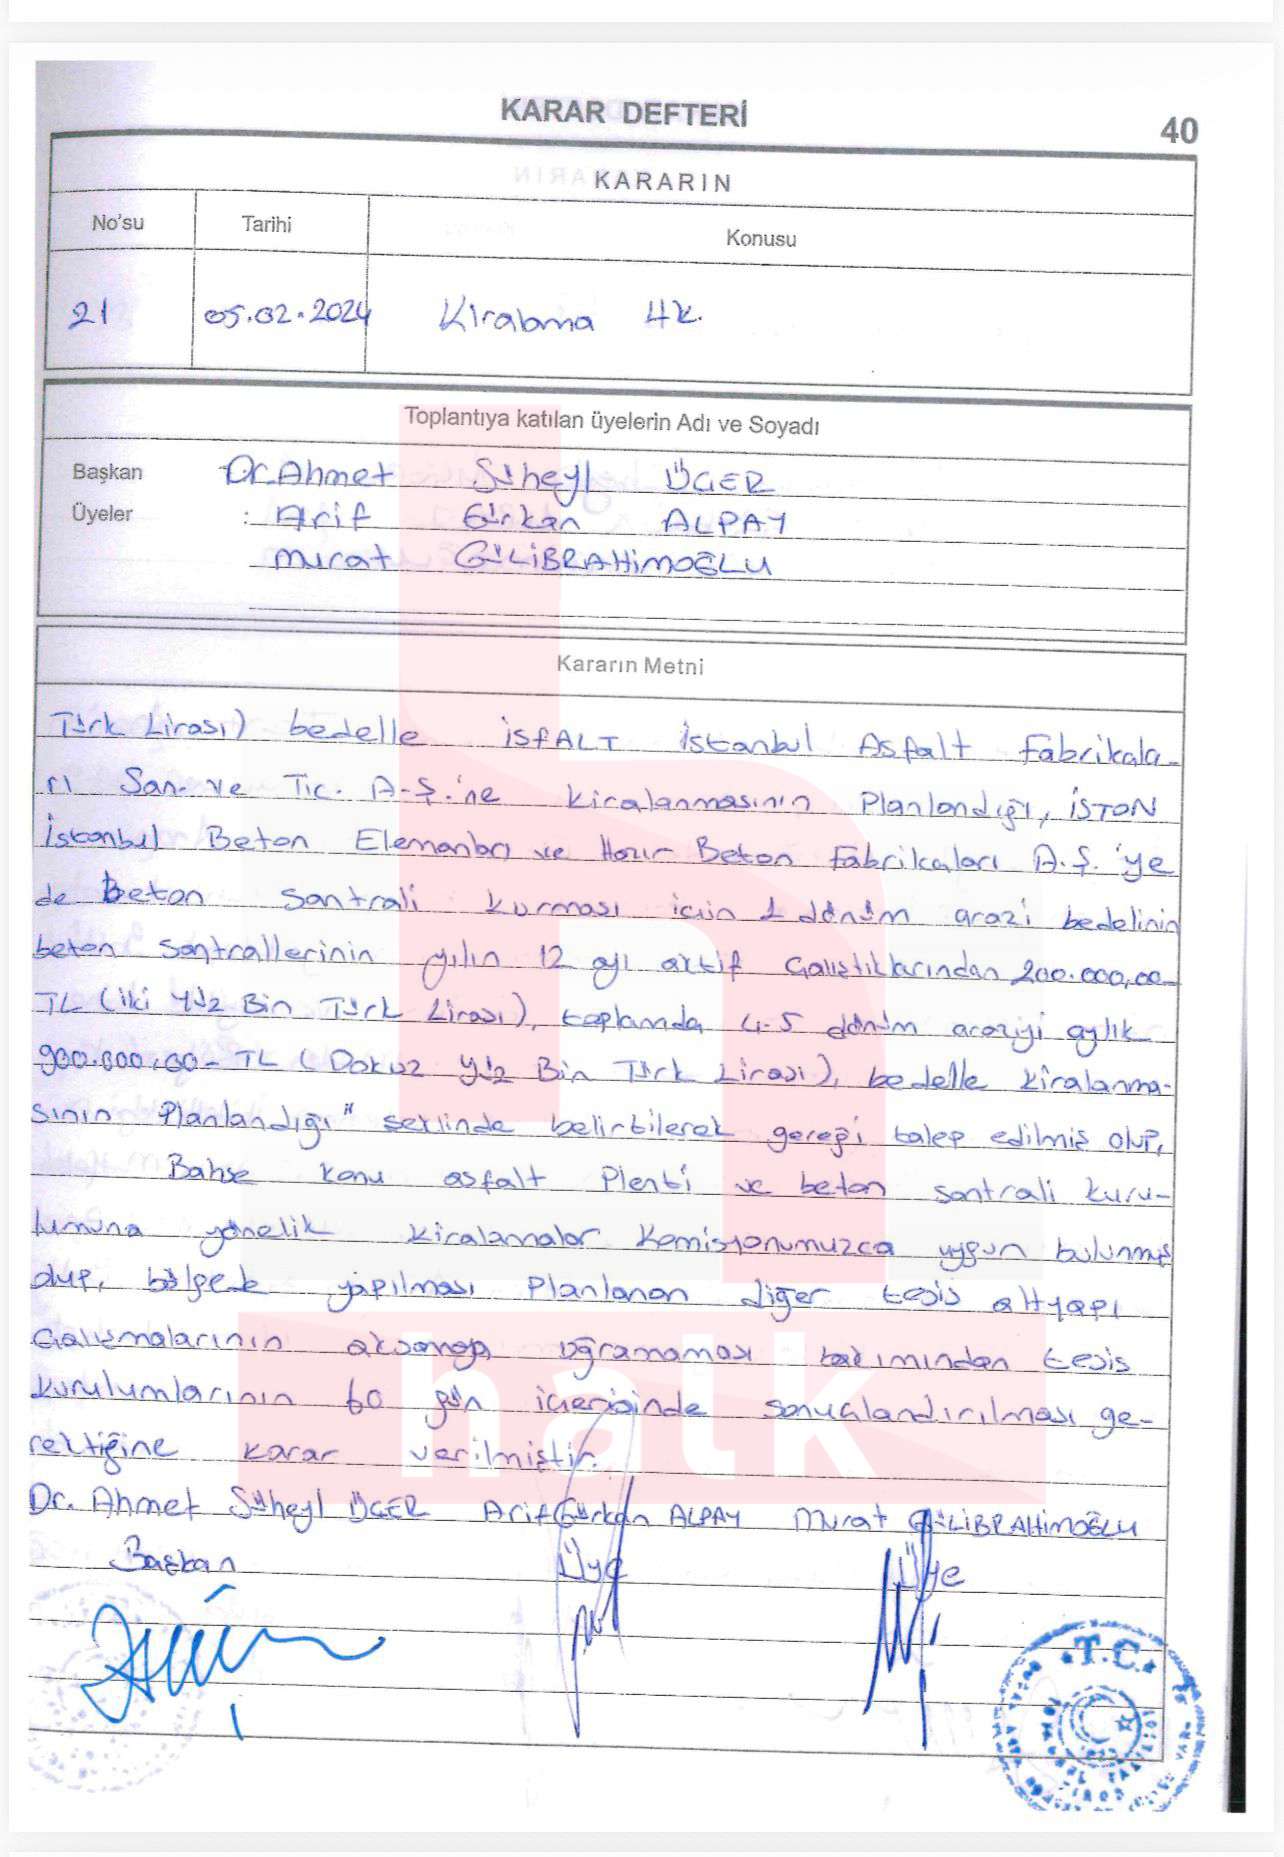 KARAR DEFTERİ
40
KARARIN
No'su Tarihi Konusu
21 05.02.2024 Kiralama Hk.
Toplantıya katılan üyelerin Adı ve Soyadı
Başkan Dr. Ahmet Süheyl ÜÇER
Üyeler : Arif Gürkan ALPAY
Murat GÜLİBRAHİMOĞLU
Kararın Metni
Türk Lirası) bedelle İSFALT İstanbul Asfalt Fabrikala-
rı San. ve Tic. A.Ş.'ne kiralanmasının Planlandığı, İSTON
İstanbul Beton Elemanları ve Hazır Beton Fabrikaları A.Ş.'ye
de beton santrali kurması için 1 dönüm arazi bedelinin
beton santrallerinin yılın 12 ayı aktif çalıştıklarından 200.000,00-
TL (iki yüz Bin Türk Lirası), toplamda 4-5 dönüm araziyi aylık
900.000,00- TL (Dokuz yüz Bin Türk Lirası), bedelle kiralanma-
sının Planlandığı" şeklinde belirtilerek gereği talep edilmiş olup,
Bahse konu asfalt Plenti ve beton santrali kuru-
lumuna yönelik kiralamalar Komisyonumuzca uygun bulunmuş
olup, bölgede yapılması planlanan diğer tesis altyapı
çalışmalarının aksamaya uğramaması bakımından tesis
kurulumlarının 60 gün içerisinde sonuçlandırılması ge-
rektiğine karar verilmiştir.
Dr. Ahmet Süheyl ÜÇER Arif Gürkan ALPAY Murat GÜLİBRAHİMOĞLU
Başkan Üye Üye
T.C.
halk